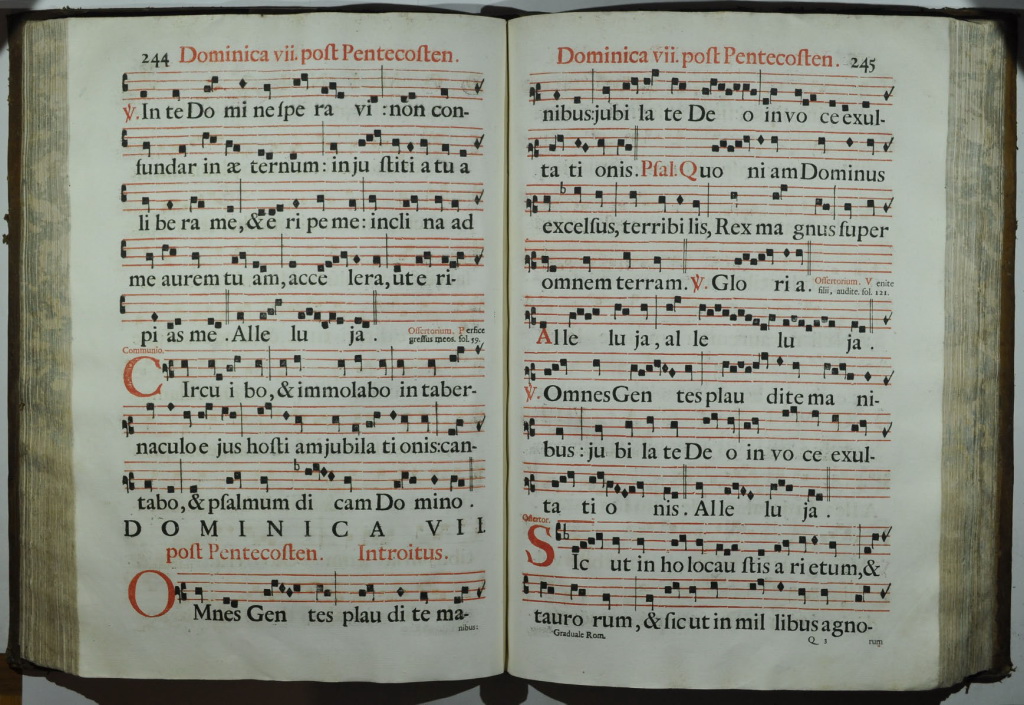 244 Dominica vii. poſt Pentecoſten.
℣. In te Do mi ne ſpe ra vi : non con-
fundar in æ ternum : in ju ſtiti a tu a
li be ra me, & e ri pe me : incli na ad
me aurem tu am, acce lera, ut e ri-
pi as me . Alle lu ja .
Offertorium. Perfice
greſſus meos. fol. 59.
Communio.
CIrcu i bo, & immolabo in taber-
naculo e jus hoſti am jubila ti onis: can-
tabo, & pſalmum di cam Do mino .
DOMINICA VII.
poſt Pentecoſten. Introitus.
OMnes Gen tes plau di te ma-
nibus:
Dominica vii. poſt Pentecoſten. 245
nibus: jubi la te De o in vo ce exul-
ta ti onis. Pſal. Quo ni am Dominus
excelſus, terribi lis, Rex ma gnus ſuper
omnem terram. ℣. Glo ri a.
Offertorium. Venite
filii, audite. fol. 121.
Alle lu ja, al le lu ja .
℣. Omnes Gen tes plau dite ma ni-
bus : ju bi la te De o in vo ce exul-
ta ti o nis. Alle lu ja.
Offertor.
SIc ut in ho locau ſtis a ri etum, &
tauro rum, & ſic ut in mil libus agno-
Graduale Rom. Q 3 rum